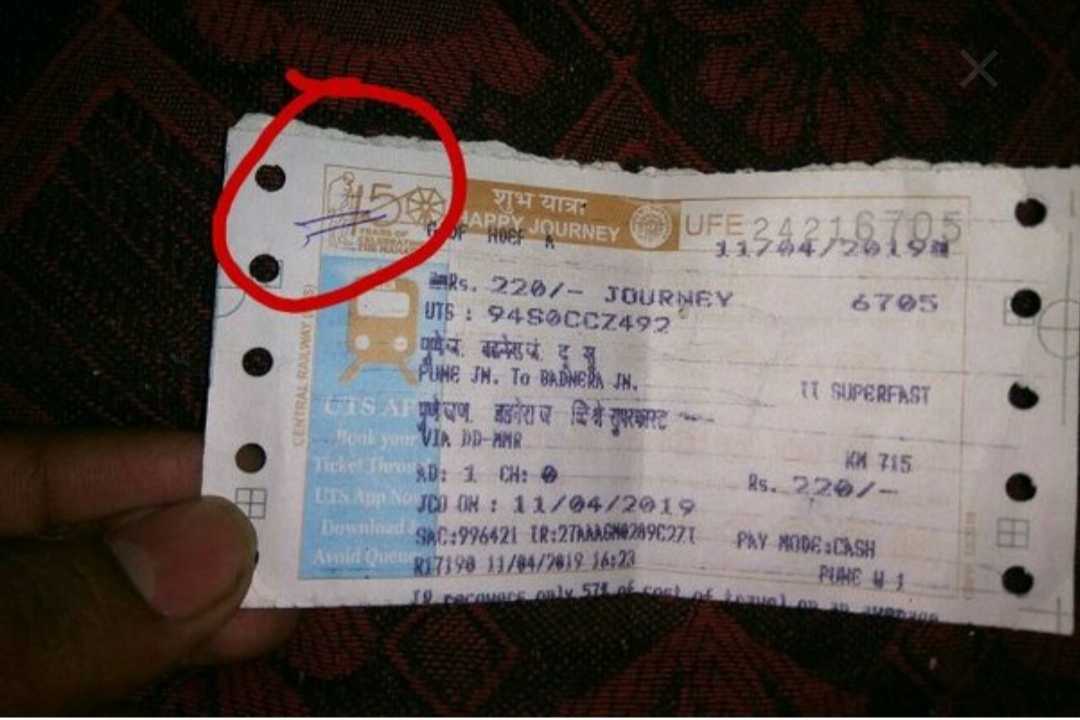 150
YEARS OF
CELEBRATING
THE MAHATMA
शुभ यात्रा
HAPPY JOURNEY
UFE 24216705
11/04/2019
Rs. 220/- JOURNEY 6705
UTS : 94S0CCZ492
PUNE JN. To BADNERA JN.
II SUPERFAST
VIA DD-MMR
KM 715
AD: 1 CH: 0
Rs. 220/-
JCO ON : 11/04/2019
SAC:996421 IR:27AAAGM0289C2ZI PAY MODE:CASH
R17190 11/04/2019 16:23
PUNE W 1
IR recovers only 57% of cost of travel on an average
CENTRAL RAILWAY
UTS
Book your
Ticket
UTS App Now
Download
Avoid